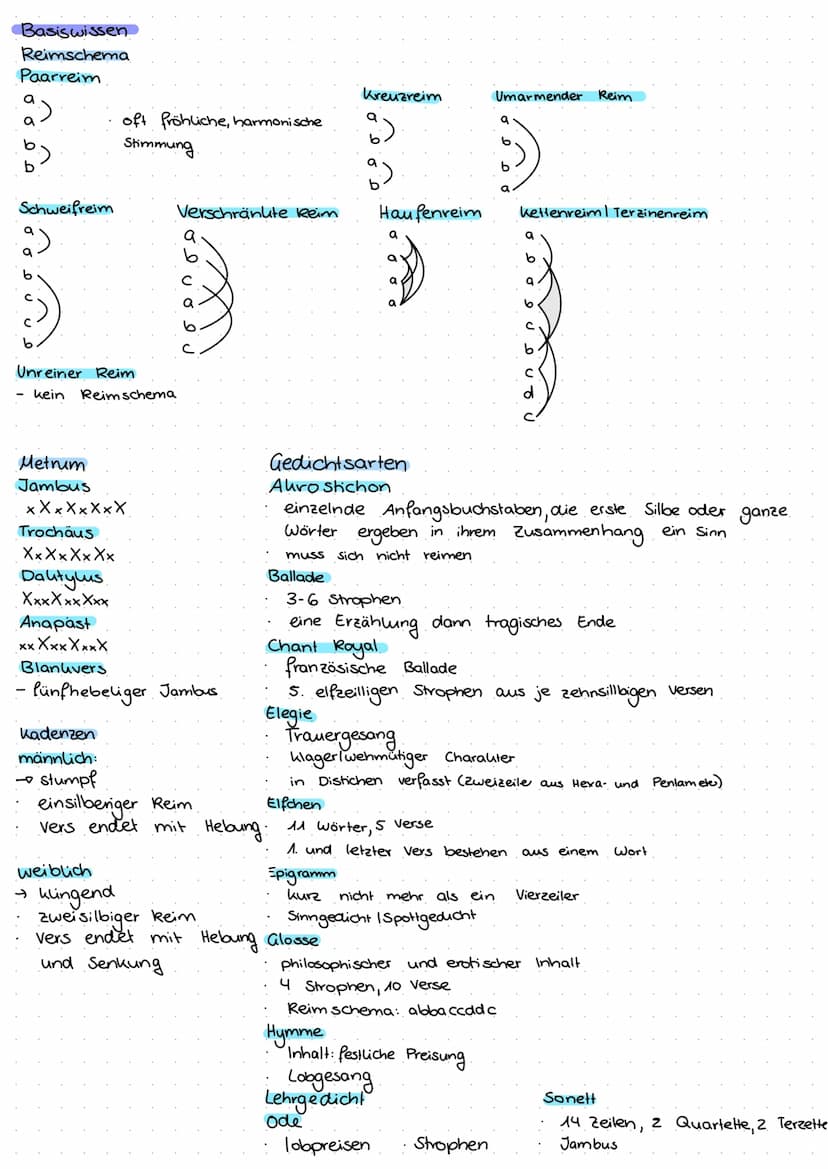 Basiswissen
Reimschema
Paarreim
a
a
b
b
· oft fröhliche, harmonische
Stimmung
Kreuzreim
a
b
a
b
Umarmender Reim
a
b
b
a
Schweifreim
a
a
b
c
c
b
Verschränkte Reim
a
b
c
a
b
c
Haufenreim
a
a
a
a
Kettenreim | Terzinenreim
a
b
a
b
c
b
c
d
c
Unreiner Reim
- kein Reimschema
Metrum
Jambus
xXxXxXxX
Trochäus
XxXxXxXx
Daktylus
XxxXxxXxx
Anapäst
xxXxxXxxX
Blankvers
- fünfhebeliger Jambus
Kadenzen
männlich:
→ stumpf
· einsilberiger Reim
· Vers endet mit Hebung
weiblich
→ klingend
· zweisilbiger Reim
· Vers endet mit Hebung
und Senkung
Gedichtsarten
Akrostichon
· einzelnde Anfangsbuchstaben, die erste Silbe oder ganze
Wörter ergeben in ihrem Zusammenhang ein Sinn
· muss sich nicht reimen
Ballade
· 3-6 Strophen
· eine Erzählung dann tragisches Ende
Chant Royal
· französische Ballade
· 5. elfzeiligen Strophen aus je zehnsillbigen Versen
Elegie
· Trauergesang
· klager/wehmütiger Charakter
· in Distichen verfasst (Zweizeile aus Hexa- und Pentamete)
Elfchen
· 11 Wörter, 5 Verse
· 1. und letzter Vers bestehen aus einem Wort
Epigramm
· kurz nicht mehr als ein Vierzeiler
· Sinngedicht | Spottgeducht
Glosse
· philosophischer und erotischer Inhalt
· 4 Strophen, 10 Verse
· Reimschema: abbaccddc
Hymme
· Inhalt: festliche Preisung
· Lobgesang
Lehrgedicht
Ode
· lobpreisen · Strophen
Sonett
· 14 Zeilen, 2 Quartette, 2 Terzette
· Jambus